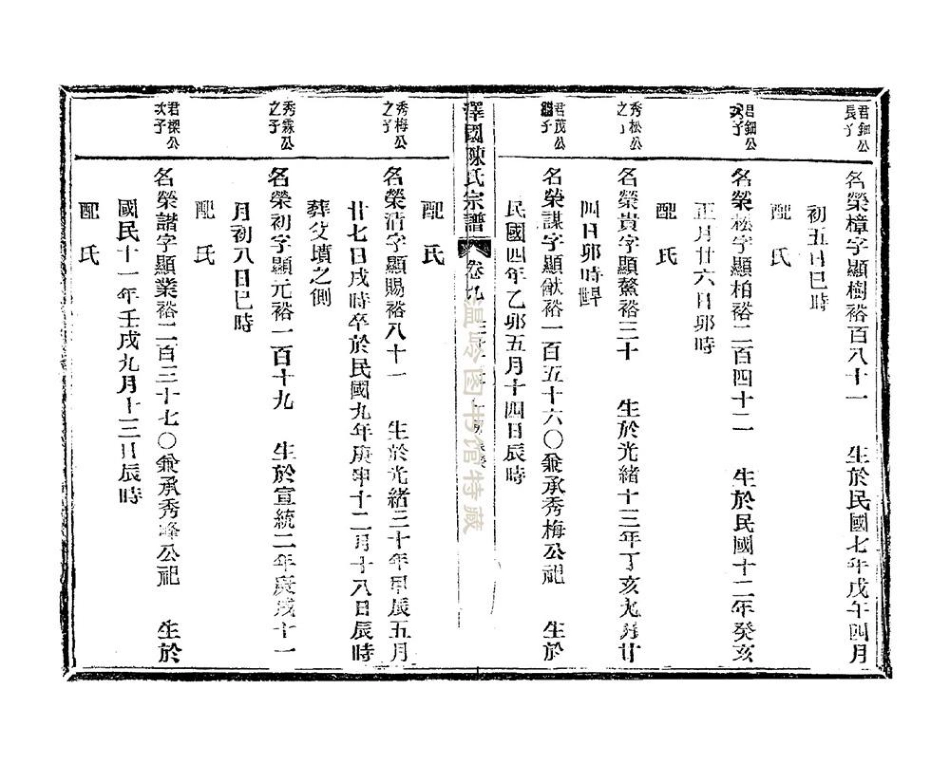 君鈿公
長子
名榮樟字顯樹裕百八十一 生於民國七年戊午四月
初五日巳時
配 氏
君鈿公
次子
名榮崧字顯柏裕二百四十二 生於民國十二年癸亥
正月廿六日卯時
配 氏
秀松公
之子
名榮貴字顯鰲裕三十 生於光緒十三年丁亥九月廿
四日卯時
君茂公
繼子
名榮謀字顯猷裕一百五十六〇兼承秀梅公祀 生於
民國四年乙卯五月十四日辰時
配 氏
澤國陳氏宗譜
卷九
温岭图书馆特藏
秀梅公
之子
名榮清字顯賜裕八十一 生於光緒三十年甲辰五月
廿七日戌時卒於民國九年庚申十二月十八日辰時
葬父墳之側
秀霖公
之子
名榮初字顯元裕一百十九 生於宣統二年庚戌十一
月初八日巳時
配 氏
君樑公
次子
名榮譜字顯業裕二百三十七〇兼承秀峰公祀 生於
國民十一年壬戌九月十三日辰時
配 氏